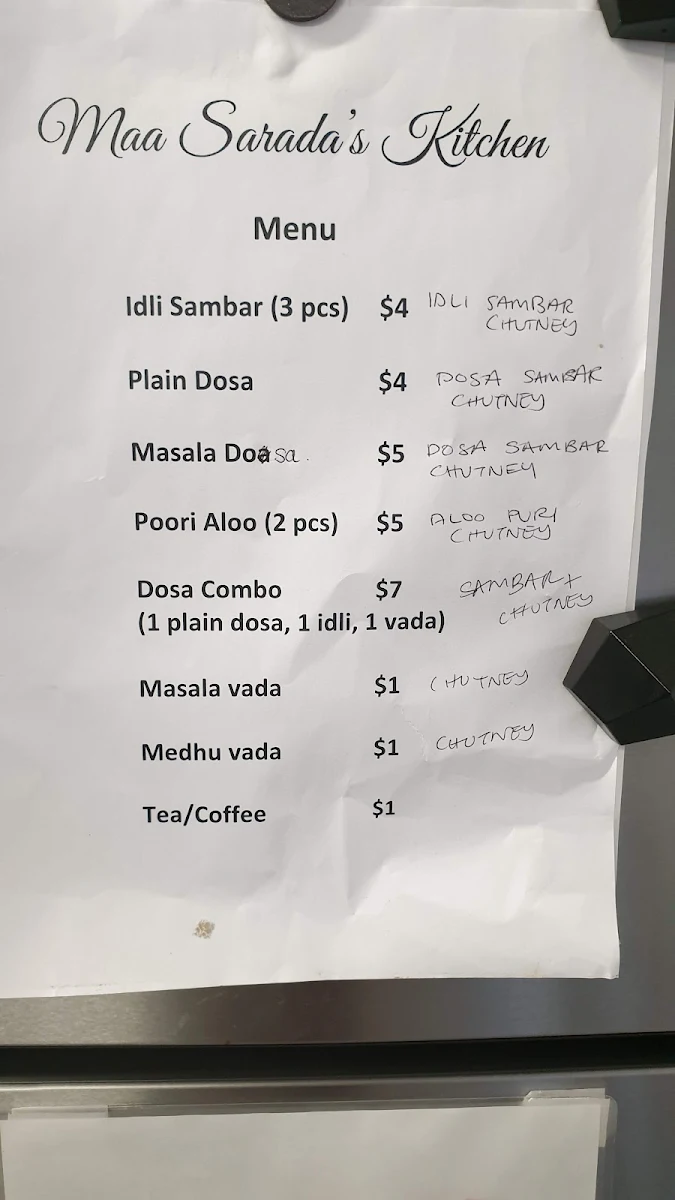 Maa Sarada's Kitchen
Menu
Idli Sambar (3 pcs) $4 IDLI SAMBAR
CHUTNEY
Plain Dosa $4 DOSA SAMBAR
CHUTNEY
Masala Doasa. $5 DOSA SAMBAR
CHUTNEY
Poori Aloo (2 pcs) $5 ALOO PURI
CHUTNEY
Dosa Combo $7 SAMBAR +
CHUTNEY
(1 plain dosa, 1 idli, 1 vada)
Masala vada $1 CHUTNEY
Medhu vada $1 CHUTNEY
Tea/Coffee $1